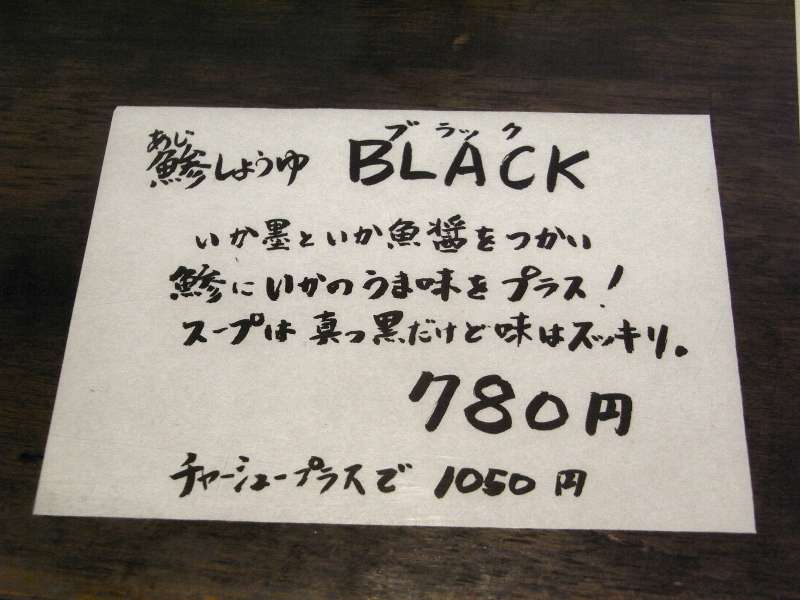 あじ ブラック
鯵しょうゆ BLACK
いか墨といか魚醤をつかい
鯵にいかのうま味をプラス！
スープは真っ黒だけど味はスッキリ。
780円
チャーシュープラスで 1050円